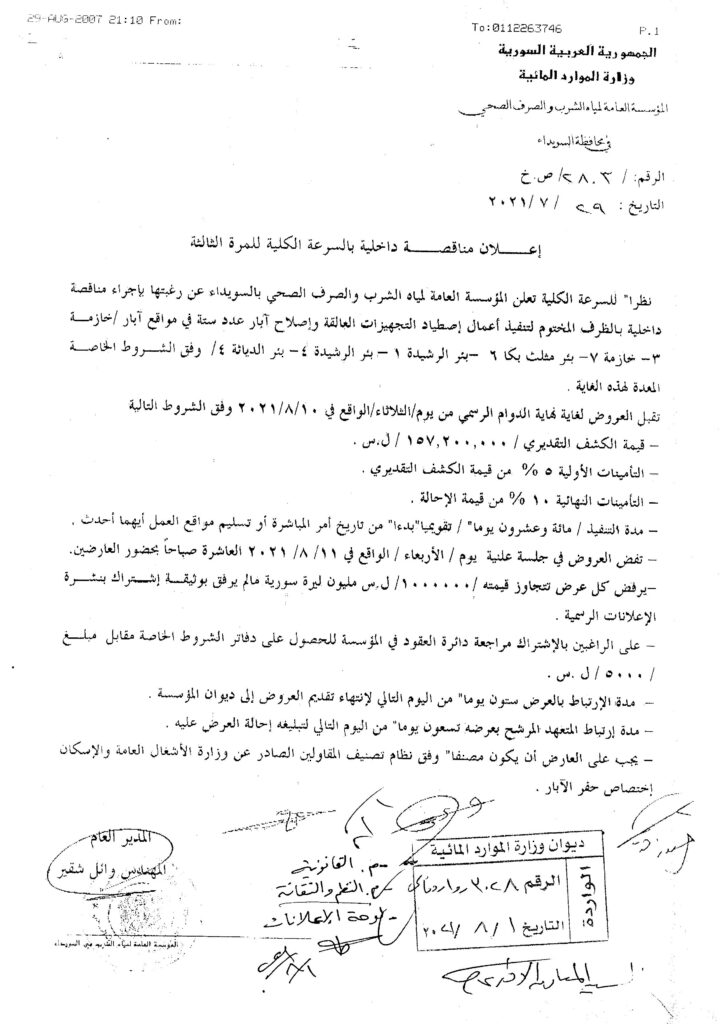 29-AUG-2007 21:10 From: To:0112263746 P.1
الجمهورية العربية السورية
وزارة الموارد المائية
المؤسسة العامة لمياه الشرب والصرف الصحي
في محافظة السويداء
الرقم: / ٢٨٠٣/ ص.خ
التاريخ : ٢٩ / ٧ /٢٠٢١
إعـــــلان مناقصـــــة داخلية بالسرعة الكلية للمرة الثالثة
نظرا" للسرعة الكلية تعلن المؤسسة العامة لمياه الشرب والصرف الصحي بالسويداء عن رغبتها بإجراء مناقصة
داخلية بالظرف المختوم لتنفيذ أعمال إصطياد التجهيزات العالقة وإصلاح آبار عدد ستة في مواقع آبار /خازمة
٣- خازمة ٧- بئر مثلث بكا ٦ -بئر الرشيدة ١ - بئر الرشيدة ٤- بئر الدياثة ٤/ وفق الشروط الخاصة
المعدة لهذه الغاية .
تقبل العروض لغاية نهاية الدوام الرسمي من يوم/الثلاثاء/الواقع في ٢٠٢١/٨/١٠ وفق الشروط التالية
- قيمة الكشف التقديري / ١٥٧,٢٠٠,٠٠٠ / ل.س .
- التأمينات الأولية ٥ % من قيمة الكشف التقديري .
- التأمينات النهائية ١٠ % من قيمة الإحالة .
- مدة التنفيذ / مائة وعشرون يوما" / تقويميا"بدءا" من تاريخ أمر المباشرة أو تسليم مواقع العمل أيهما أحدث .
- تفض العروض في جلسة علنية يوم / الأربعاء / الواقع في ١١/ ٨ /٢٠٢١ العاشرة صباحاً بحضور العارضين.
-يرفض كل عرض تتجاوز قيمته /١٠٠٠٠٠٠/ ل.س مليون ليرة سورية مالم يرفق بوثيقة إشتراك بنشرة
الإعلانات الرسمية .
- على الراغبين بالإشتراك مراجعة دائرة العقود في المؤسسة للحصول على دفاتر الشروط الخاصة مقابل مبلغ
/ ٥٠٠٠ / ل.س .
- مدة الإرتباط بالعرض ستون يوما" من اليوم التالي لإنتهاء تقديم العروض إلى ديوان المؤسسة .
- مدة إرتباط المتعهد المرشح بعرضه تسعون يوما" من اليوم التالي لتبليغه إحالة العرض عليه .
- يجب على العارض أن يكون مصنفا" وفق نظام تصنيف المقاولين الصادر عن وزارة الأشغال العامة والإسكان
إختصاص حفر الآبار .
المدير العام
المهندس وائل شقير
المؤسسة العامة لمياه الشرب في السويداء
- م. القانونية
- م. النظم والتقانة
- لوحة الإعلانات
ديوان وزارة الموارد المائية
الواردة
الرقم ٣٠٢٨
التاريخ ١ / ٨ /٢٠٢١